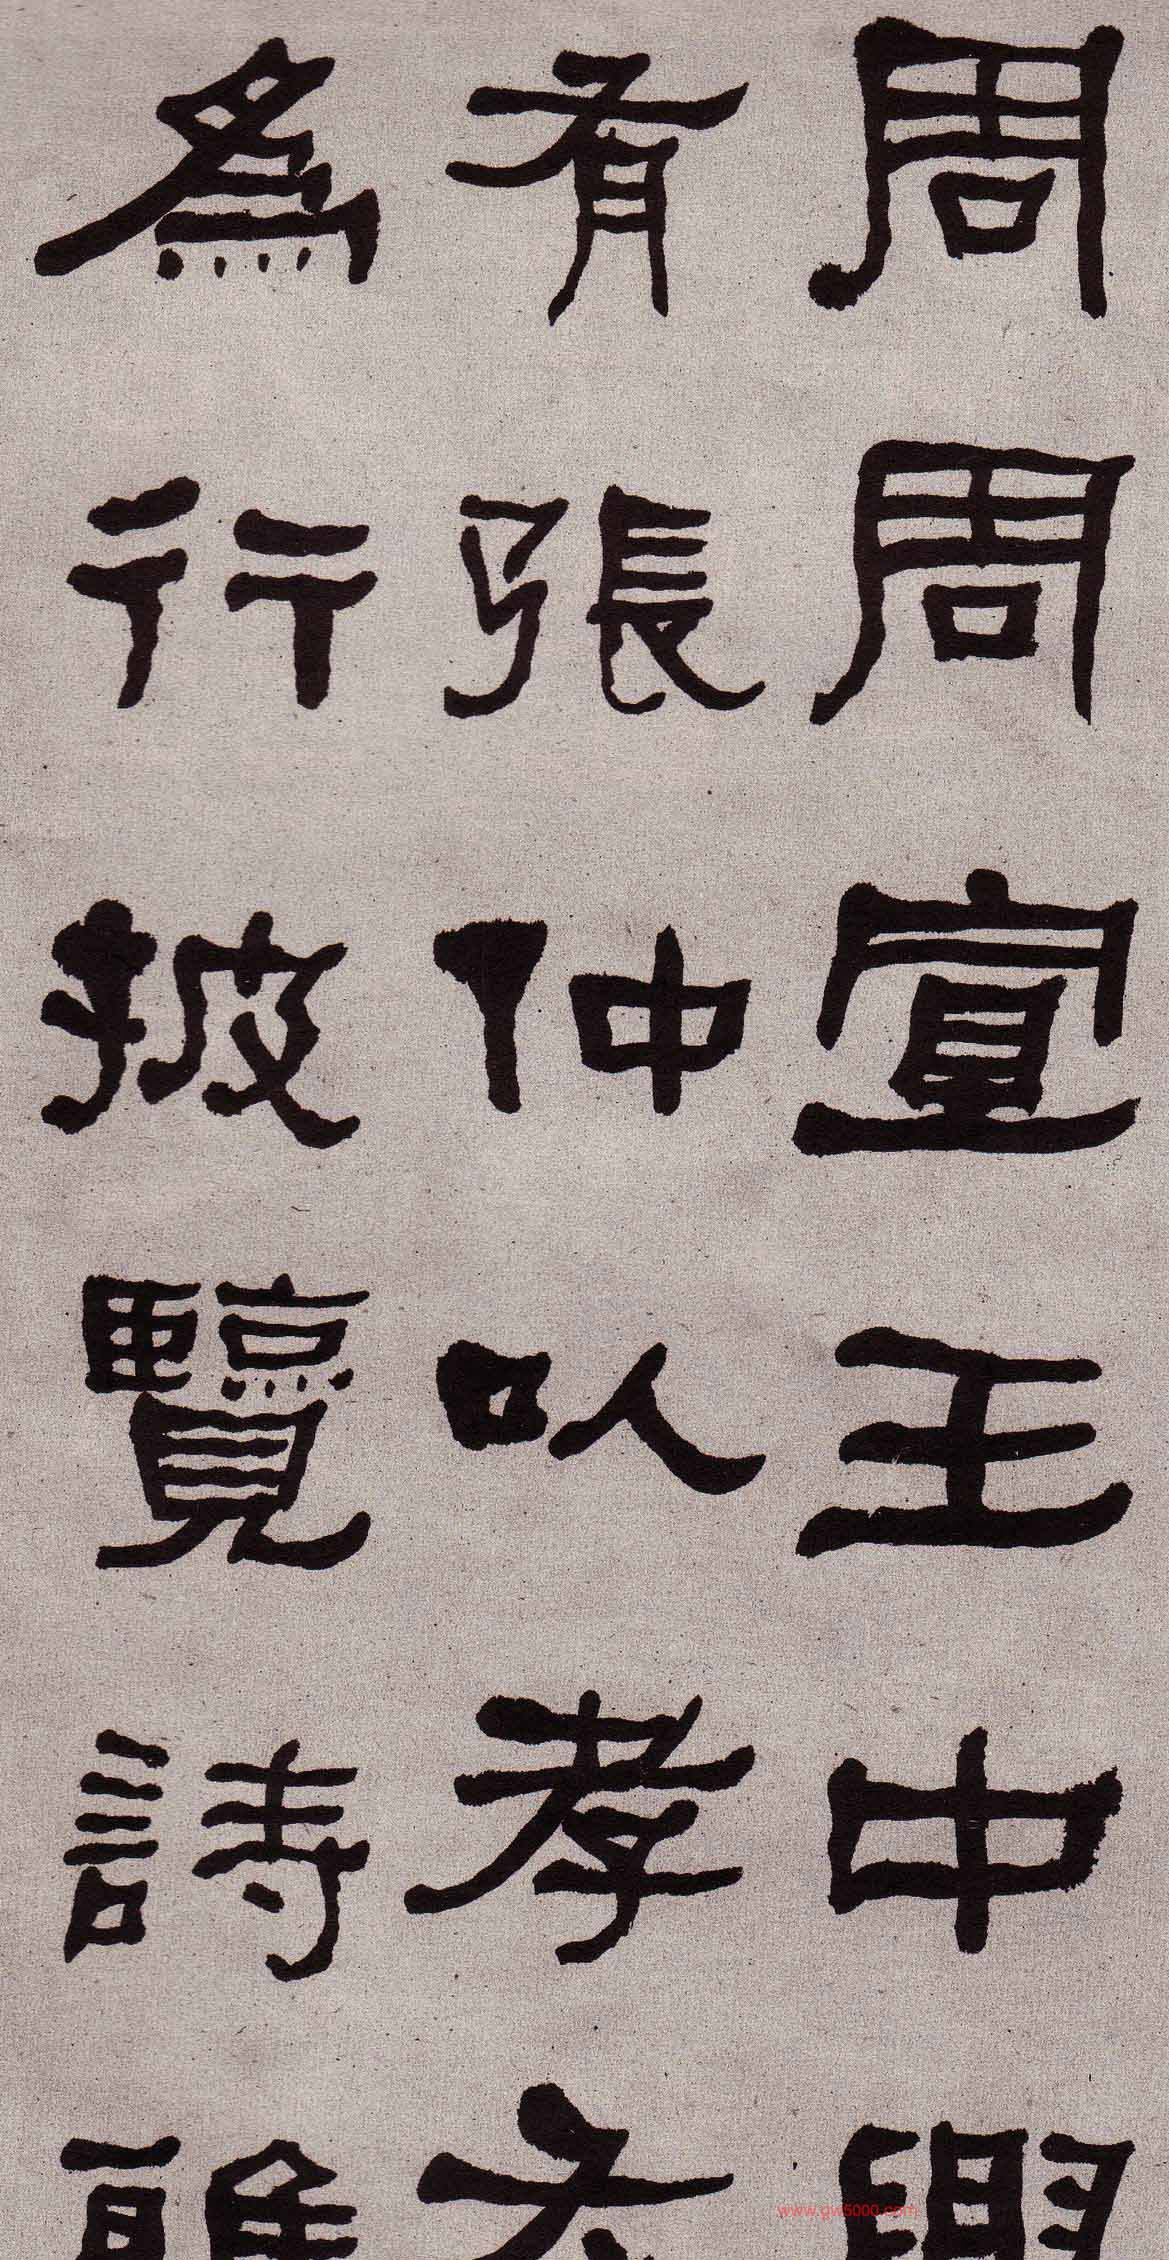 周周宣王中興
有張仲以孝友
為行披覽詩雅
www.gw5000.com